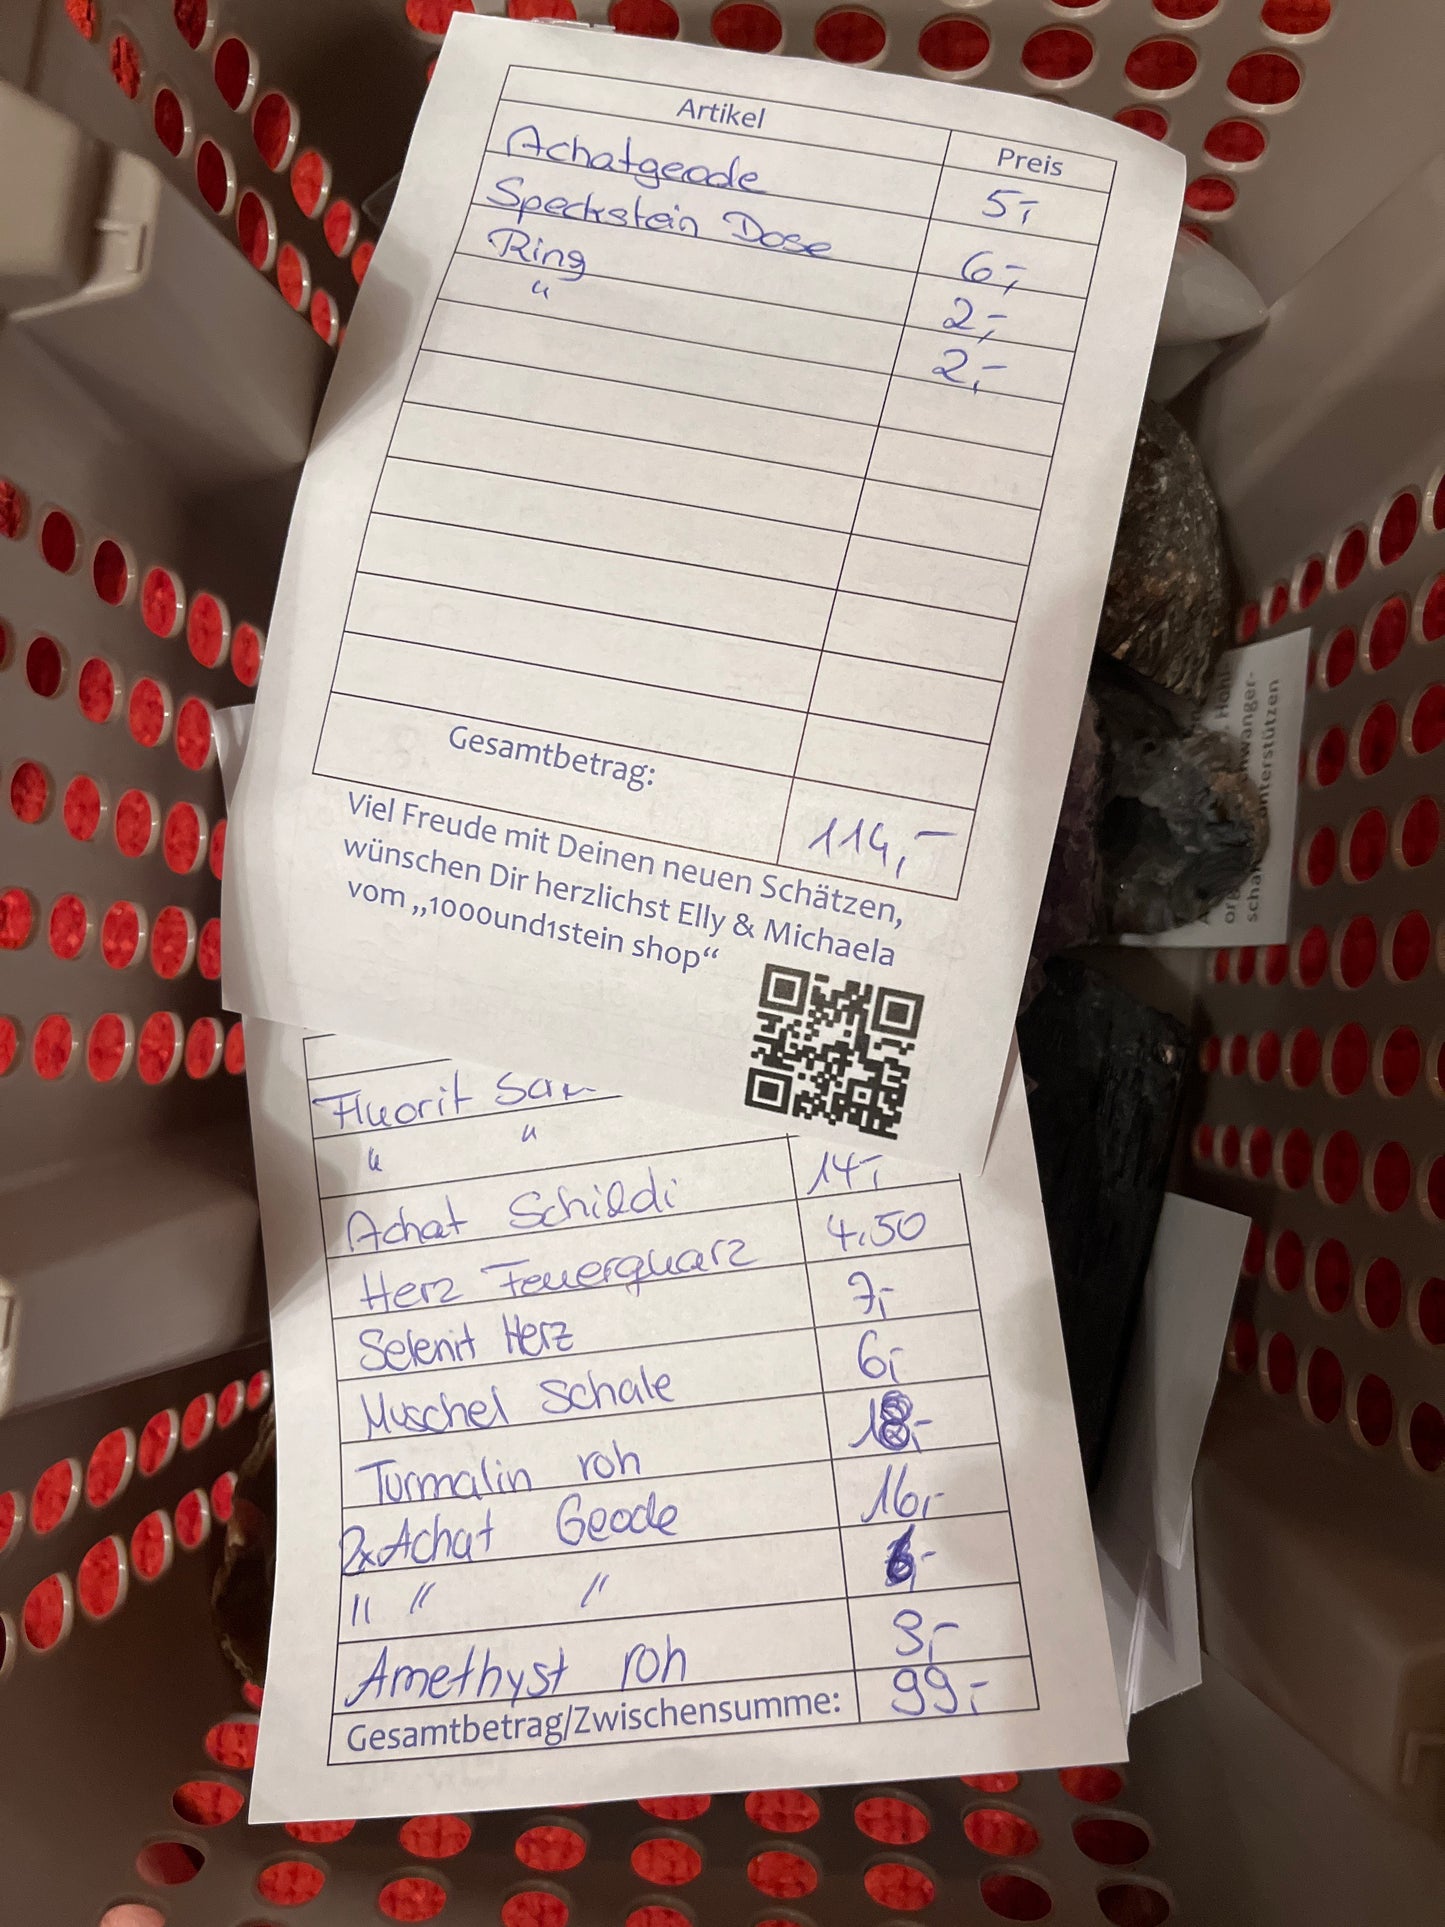 Artikel Preis
Achatgeode 5,-
Speckstein Dose 6,-
Ring 2,-
" 2,-
Gesamtbetrag: 114,-
Viel Freude mit Deinen neuen Schätzen,
wünschen Dir herzlichst Elly & Michaela
vom „1000und1stein shop“
Fluorit
" "
14,-
Achat Schildi 4,50
Herz Feuerquarz 7,-
Selenit Herz 6,-
Muschel Schale 18,-
Turmalin roh 16,-
2x Achat Geode
" " "
Amethyst roh 3,-
Gesamtbetrag/Zwischensumme: 99,-
unterstützen